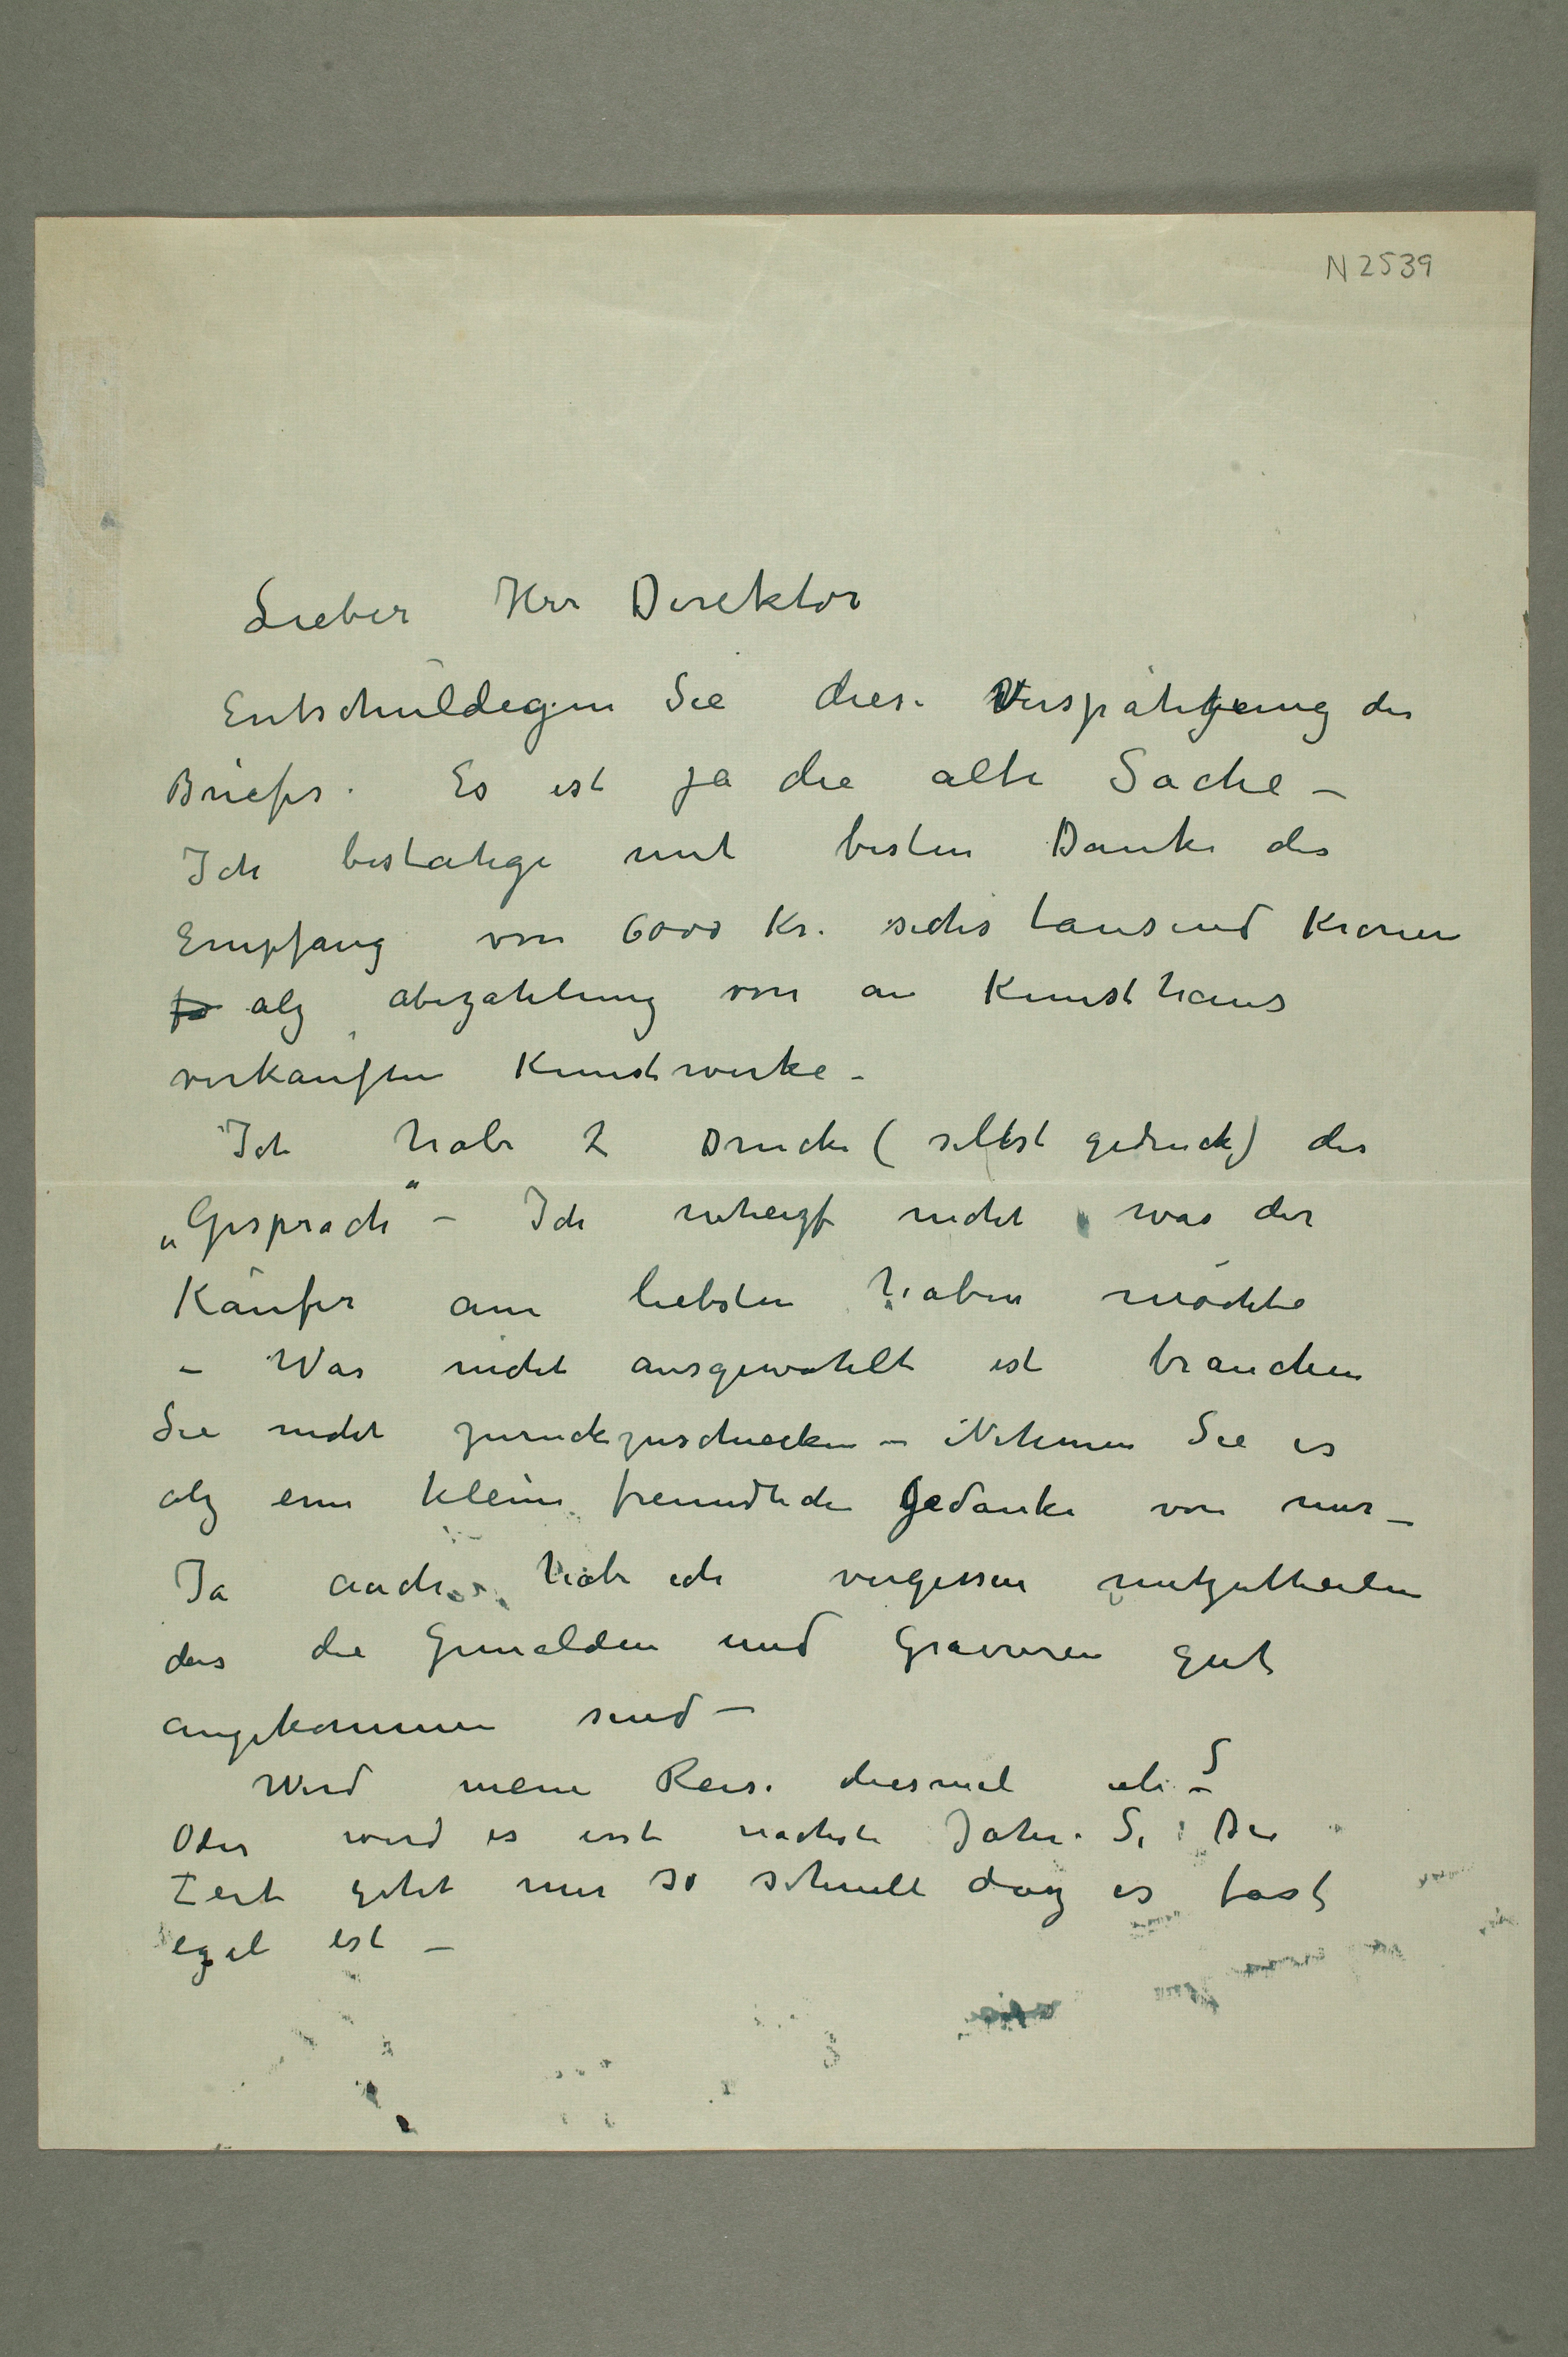 N 2539
Lieber Herr Direktor
Entschuldigen Sie diese Verspätigung des
Briefes. Es ist ja die alte Sache –
Ich bestätige mit besten Danke des
Empfang von 6000 Kr. sechs tausend Kronen
als abezahlung von an Kunsthaus
verkauften Kunstwerke –
Ich habe 2 Drucke (selbst gedruck) des
„Gespräch“ – Ich weheizt nicht was der
Käufer am liebsten haben möchte
– Was nicht ausgewählt ist brauchen
Sie nicht zurückzuschicken – Nehmen Sie es
alz eine kleine freundliche Gedanke von mir –
Ja auch habe ich vergessen mitzutheilen
das die Gemälden und Gravuren gut
angekommen sind –
Wird meine Reise diesmal ?
Oder wird es erst nächste Jahre? Die
Zeit geht mir so schnell daz es fast
egal ist –